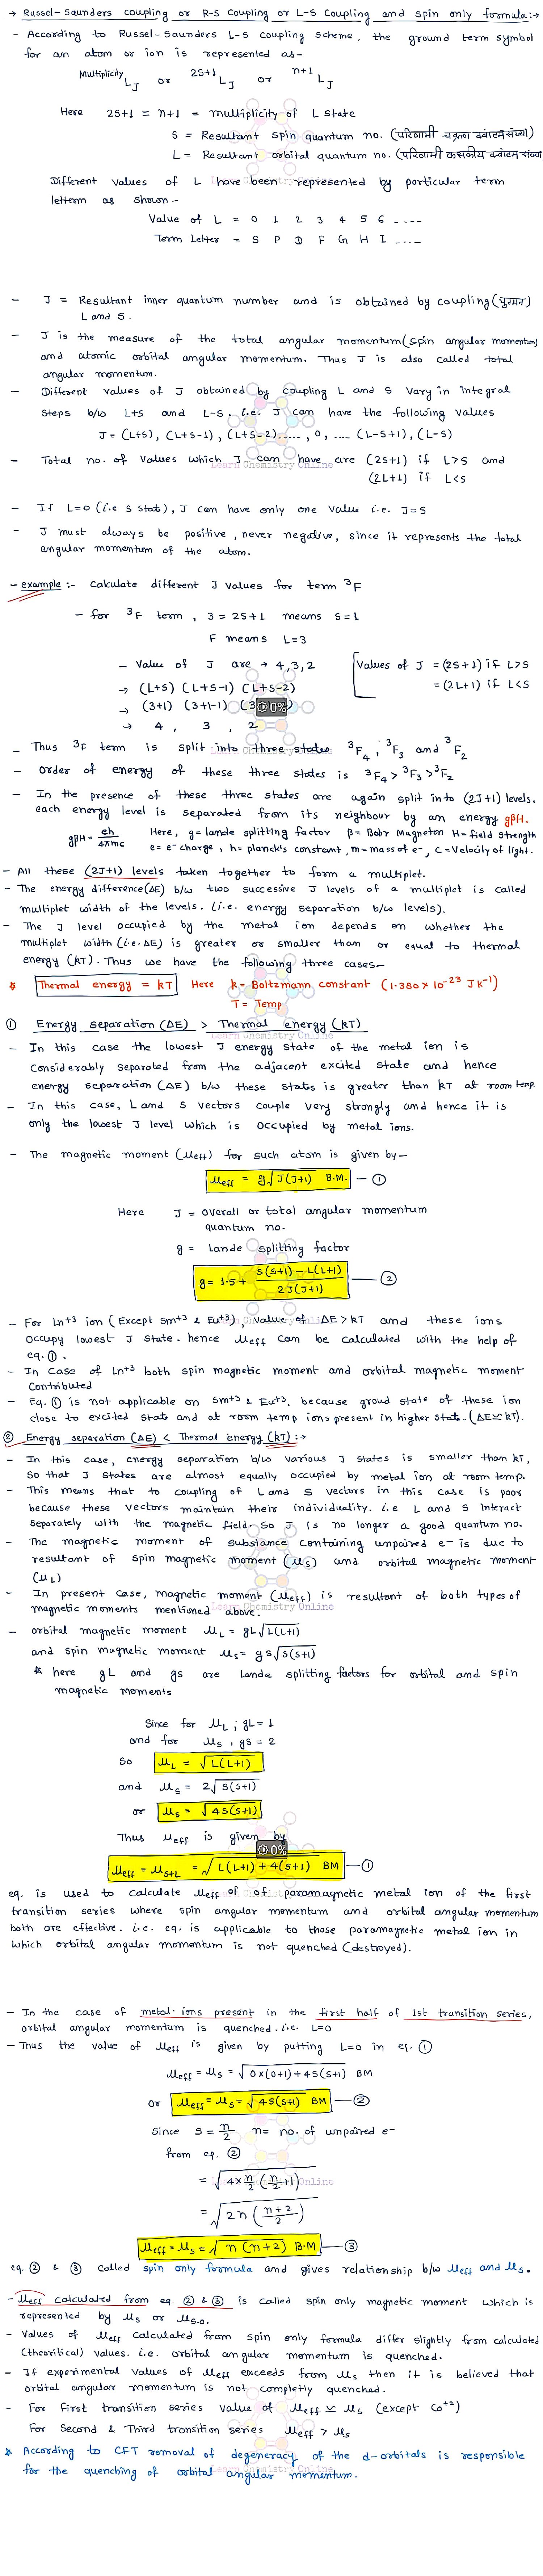 → Russel-Saunders coupling or R-S Coupling or L-S Coupling and spin only formula:→
- According to Russel-Saunders L-S coupling scheme, the ground term symbol
for an atom or ion is represented as-
Multiplicity LJ or 2S+1 LJ or n+1 LJ
Here 2S+1 = n+1 = multiplicity of L state
S = Resultant spin quantum no. (परिणामी चक्रण क्वांटम संख्या)
L = Resultant orbital quantum no. (परिणामी कक्षकीय क्वांटम संख्या
Different values of L have been represented by particular term
letterm as shown-
Value of L = 0 1 2 3 4 5 6 ----
Term Letter = S P D F G H I ----
- J = Resultant inner quantum number and is obtained by coupling (युग्मन)
L and S.
- J is the measure of the total angular momentum (spin angular momentum)
and atomic orbital angular momentum. Thus J is also called total
angular momentum.
- Different values of J obtained by coupling L and S vary in integral
steps b/w L+S and L-S. i.e. J can have the following values
J = (L+S), (L+S-1), (L+S-2)....., 0, .... (L-S+1), (L-S)
- Total no. of values which J can have are (2S+1) if L>S and
(2L+1) if L<S
- If L=0 (i.e S stat), J can have only one value i.e. J=S
- J must always be positive, never negative, since it represents the total
angular momentum of the atom.
- example:- Calculate different J values for term ³F
- for ³F term, 3 = 2S+1 means S=1
F means L=3
- Value of J are → 4,3,2
Values of J = (2S+1) if L>S
= (2L+1) if L<S
→ (L+S) (L+S-1) (L+S-2)
→ (3+1) (3+1-1) (3
0%
→ 4, 3, 2
- Thus ³F term is split into three states ³F4, ³F3 and ³F2
- order of energy of these three states is ³F4 > ³F3 > ³F2
- In the presence of these three states are again split into (2J+1) levels.
each energy level is separated from its neighbour by an energy gβH.
gβH = eh/4πmc Here, g= lande splitting factor β= Bohr Magneton H= field strength
e= e⁻ charge, h= planck's constant, m= mass of e⁻, C= Velocity of light.
- All these (2J+1) levels taken together to form a multiplet.
- The energy difference (ΔE) b/w two successive J levels of a multiplet is called
multiplet width of the levels. (i.e. energy separation b/w levels).
- The J level occupied by the metal ion depends on whether the
multiplet width (i.e. ΔE) is greater or smaller than or equal to thermal
energy (kT). Thus we have the following three cases-
* Thermal energy = kT Here k= Boltzmann constant (1.380 × 10⁻²³ JK⁻¹)
T = Temp
① Energy separation (ΔE) > Thermal energy (kT)
- In this case the lowest J energy state of the metal ion is
Considerably separated from the adjacent excited state and hence
energy separation (ΔE) b/w these stats is greater than kT at room temp.
- In this case, L and S vectors couple very strongly and hence it is
only the lowest J level which is occupied by metal ions.
- The magnetic moment (μeff) for such atom is given by-
μeff = g√J(J+1) B.M. — ①
Here J = overall or total angular momentum
quantum no.
g = Lande splitting factor
g = 1.5 + S(S+1) - L(L+1) / 2J(J+1) — ②
- For Ln⁺³ ion (Except Sm⁺³ & Eu⁺³), value of ΔE>kT and these ions
occupy lowest J state. hence μeff can be calculated with the help of
eq. ①.
- In case of Ln⁺³ both spin magnetic moment and orbital magnetic moment
Contributed
- Eq. ① is not applicable on Sm⁺³ & Eu⁺³. because groud state of these ion
close to excited stats and at room temp ions present in higher state. (ΔE≃kT).
② Energy separation (ΔE) < Thermal energy (kT):→
- In this case, energy separation b/w various J states is smaller than kT,
So that J States are almost equally occupied by metal ion at room temp.
- This means that to coupling of L and S vectors in this case is poor
because these vectors maintain their individuality. i.e L and S interact
Separately with the magnetic field. So J is no longer a good quantum no.
- The magnetic moment of substance containing unpaired e⁻ is due to
resultant of spin magnetic moment (μs) and orbital magnetic moment
(μL)
- In present case, magnetic moment (μeff) is resultant of both types of
magnetic moments mentioned above.
- orbital magnetic moment μL = gL√L(L+1)
and spin magnetic moment μs = gs√S(S+1)
* here gL and gs are Lande splitting factors for orbital and spin
magnetic moments
Since for μL ; gL=1
and for μs , gs = 2
So μL = √L(L+1)
and μs = 2√S(S+1)
or μs = √4S(S+1)
Thus μeff is given by
0%
μeff = μs+L = √L(L+1) + 4(S+1) BM — ①
eq. is used to calculate μeff of of paramagnetic metal ion of the first
transition series where spin angular momentum and orbital angular momentum
both are effective. i.e. eq. is applicable to those paramagnetic metal ion in
which orbital angular momentum is not quenched (destroyed).
- In the case of metal ions present in the first half of 1st transition series,
orbital angular momentum is quenched. i.e. L=0
- Thus the value of μeff is given by putting L=0 in eq. ①
μeff = μs = √0×(0+1) + 4S(S+1) BM
or μeff = μs = √4S(S+1) BM — ②
Since S = n/2 n= no. of unpaired e⁻
from eq. ②
= √4×n/2 (n/2 +1)
= √2n (n+2/2)
μeff = μs = √n(n+2) B.M — ③
eq. ② & ③ called spin only formula and gives relationship b/w μeff and μs.
- μeff calculated from eq. ② & ③ is called spin only magnetic moment which is
represented by μs or μs.o.
- Values of μeff calculated from spin only formula differ slightly from calculated
(theoritical) values. i.e. orbital angular momentum is quenched.
- If experimental values of μeff exceeds from μs then it is believed that
orbital angular momentum is not completly quenched.
- For First transition series value of μeff ≃ μs (except Co⁺²)
For Second & Third transition series μeff > μs
* According to CFT removal of degeneracy of the d-orbitals is responsible
for the quenching of orbital angular momentum.